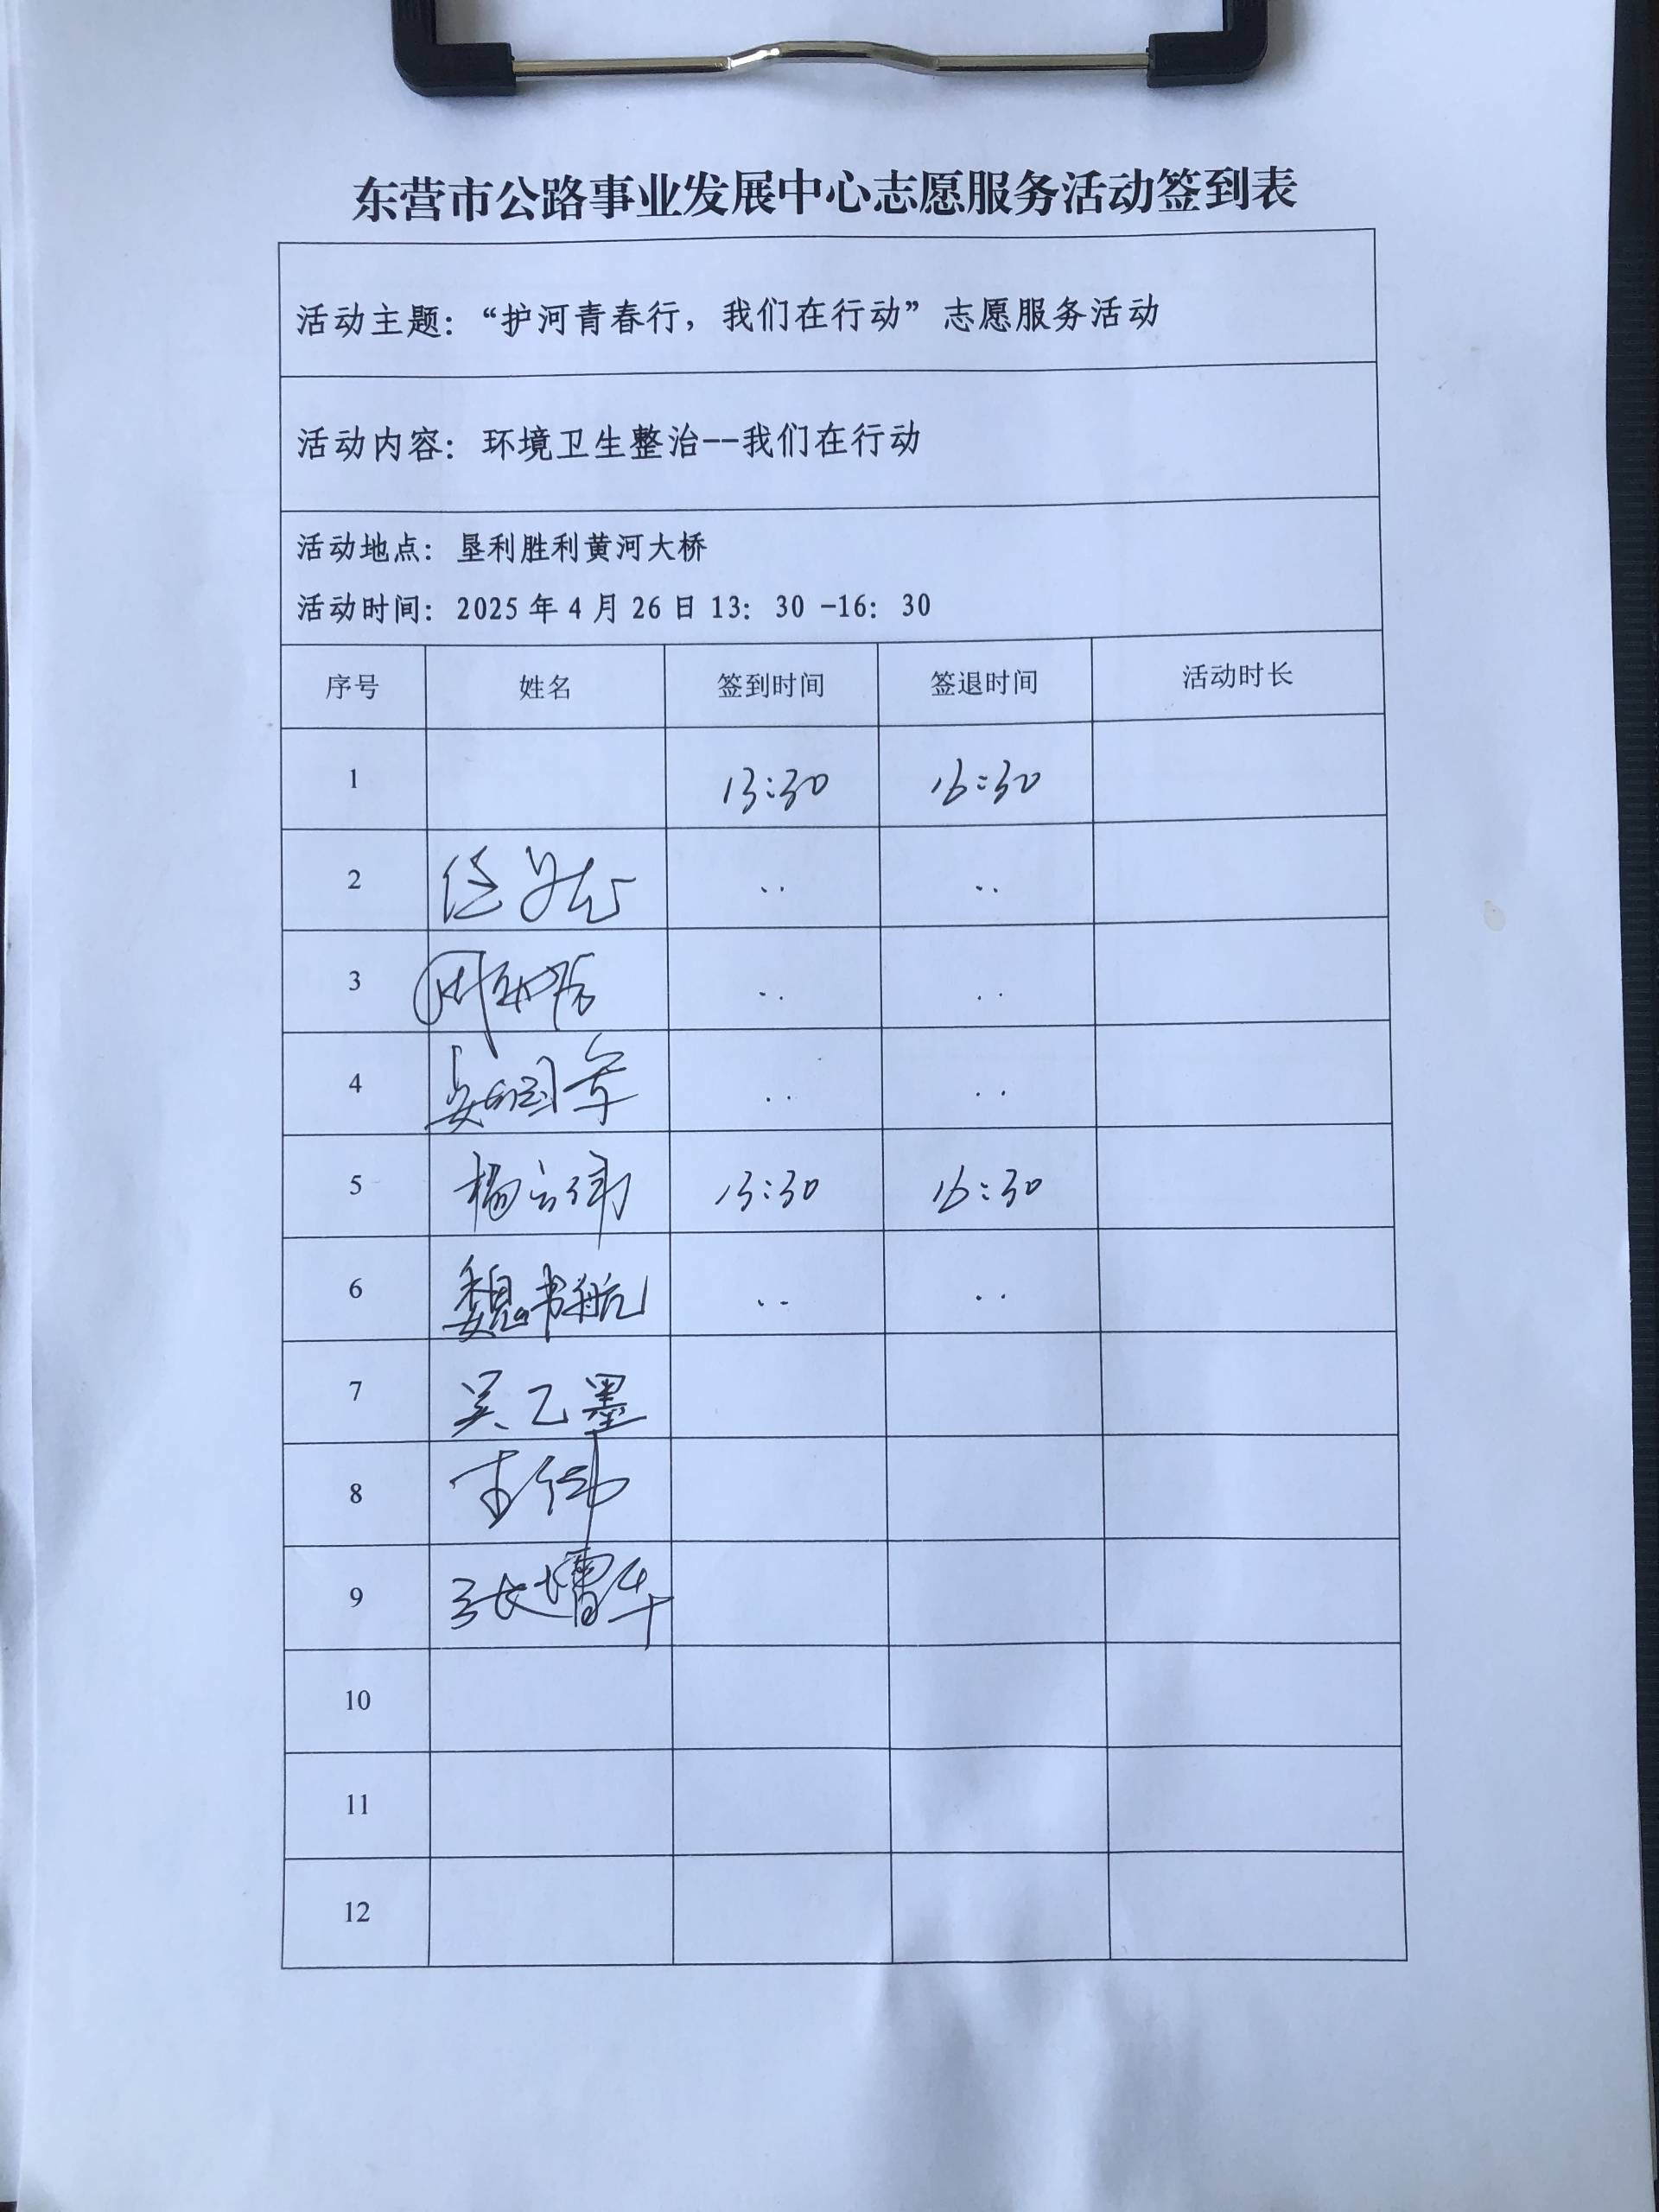 东营市公路事业发展中心志愿服务活动签到表
活动主题：“护河青春行，我们在行动”志愿服务活动
活动内容：环境卫生整治--我们在行动
活动地点：垦利胜利黄河大桥
活动时间：2025 年 4 月 26 日 13：30 -16：30
序号 姓名 签到时间 签退时间 活动时长
1 13:30 16:30
2 ‥ ‥
3 ‥ ‥
4 ‥ ‥
5 杨 13:30 16:30
6 魏书航 ‥ ‥
7 吴乙墨
8 李伟
9 张增华
10
11
12